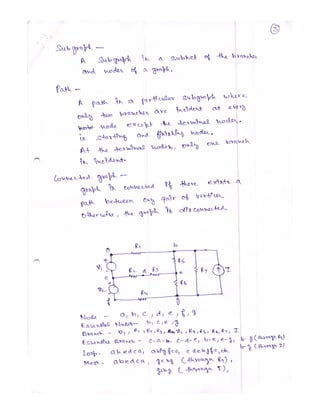 3
Subgraph —
A Subgraph is a subset of the branches
and nodes of a graph.
Path —
A path is a particular subgraph where
only two branches are incident at every
node except the terminal nodes.
ie starting and finishing nodes.
At the terminal nodes, only one branch
is incident.
Connected graph —
graph is connected if there exists a
path between any pair of vertices.
Otherwise, the graph is disconnected.
a R1 b
R6
V1 R2 d R3 e R7 I
c
R5
V2
R4
f g
Node — a, b, c, d, e, f, g
Essential Nodes — b, c, e, g
Branch — V1, R1, R2, R3, V2, R4, R5, R6, R7, I
Essential Branch — c-a-b, c-d-e, b-e, e-g, b-g (through R7)
b-g (through I)
Loop — abedca, abgfca, cdebgfc, etc
Mesh — abedca, gebg (through R7),
gbg (through I),